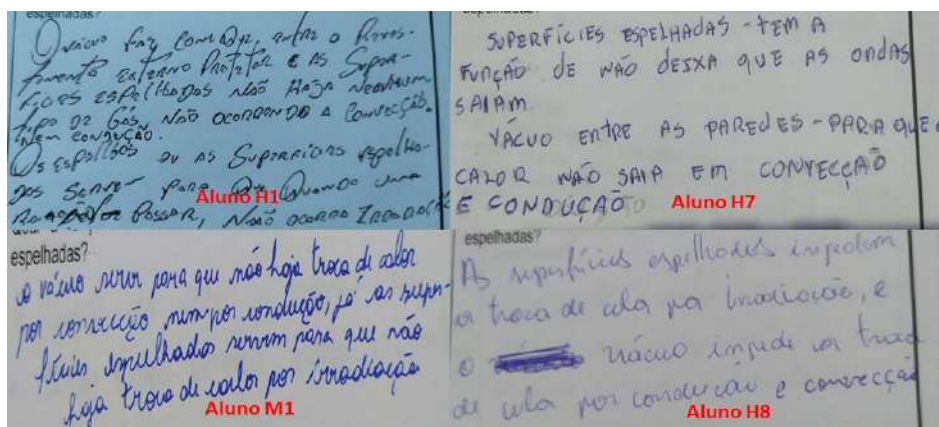 espelhadas?
O vácuo faz com que, entre o Reves-
timento externo Protetor e as Super-
fícies espelhadas não Haja nenhum
tipo de Gás, não ocorrendo a Convecção
nem condução.
Os espelhos ou as Superfícies espelha-
das serve para Que Quando uma
Passar, não ocorra
Aluno H1
SUPERFÍCIES ESPELHADAS - TEM A
FUNÇÃO DE NÃO DEIXA QUE AS ONDAS
SAIAM.
VÁCUO ENTRE AS PAREDES - PARA QUE O
CALOR NÃO SAIA EM CONVECÇÃO
E CONDUÇÃO
Aluno H7
espelhadas?
o vácuo serve para que não haja troca de calor
por convecção nem por condução, já as super-
fícies espelhadas servem para que não
haja troca de calor por irradiação
Aluno M1
espelhadas?
As superfícies espelhadas impedem
a troca de por irradiação, e
o vácuo impede
de por condução e convecção
Aluno H8